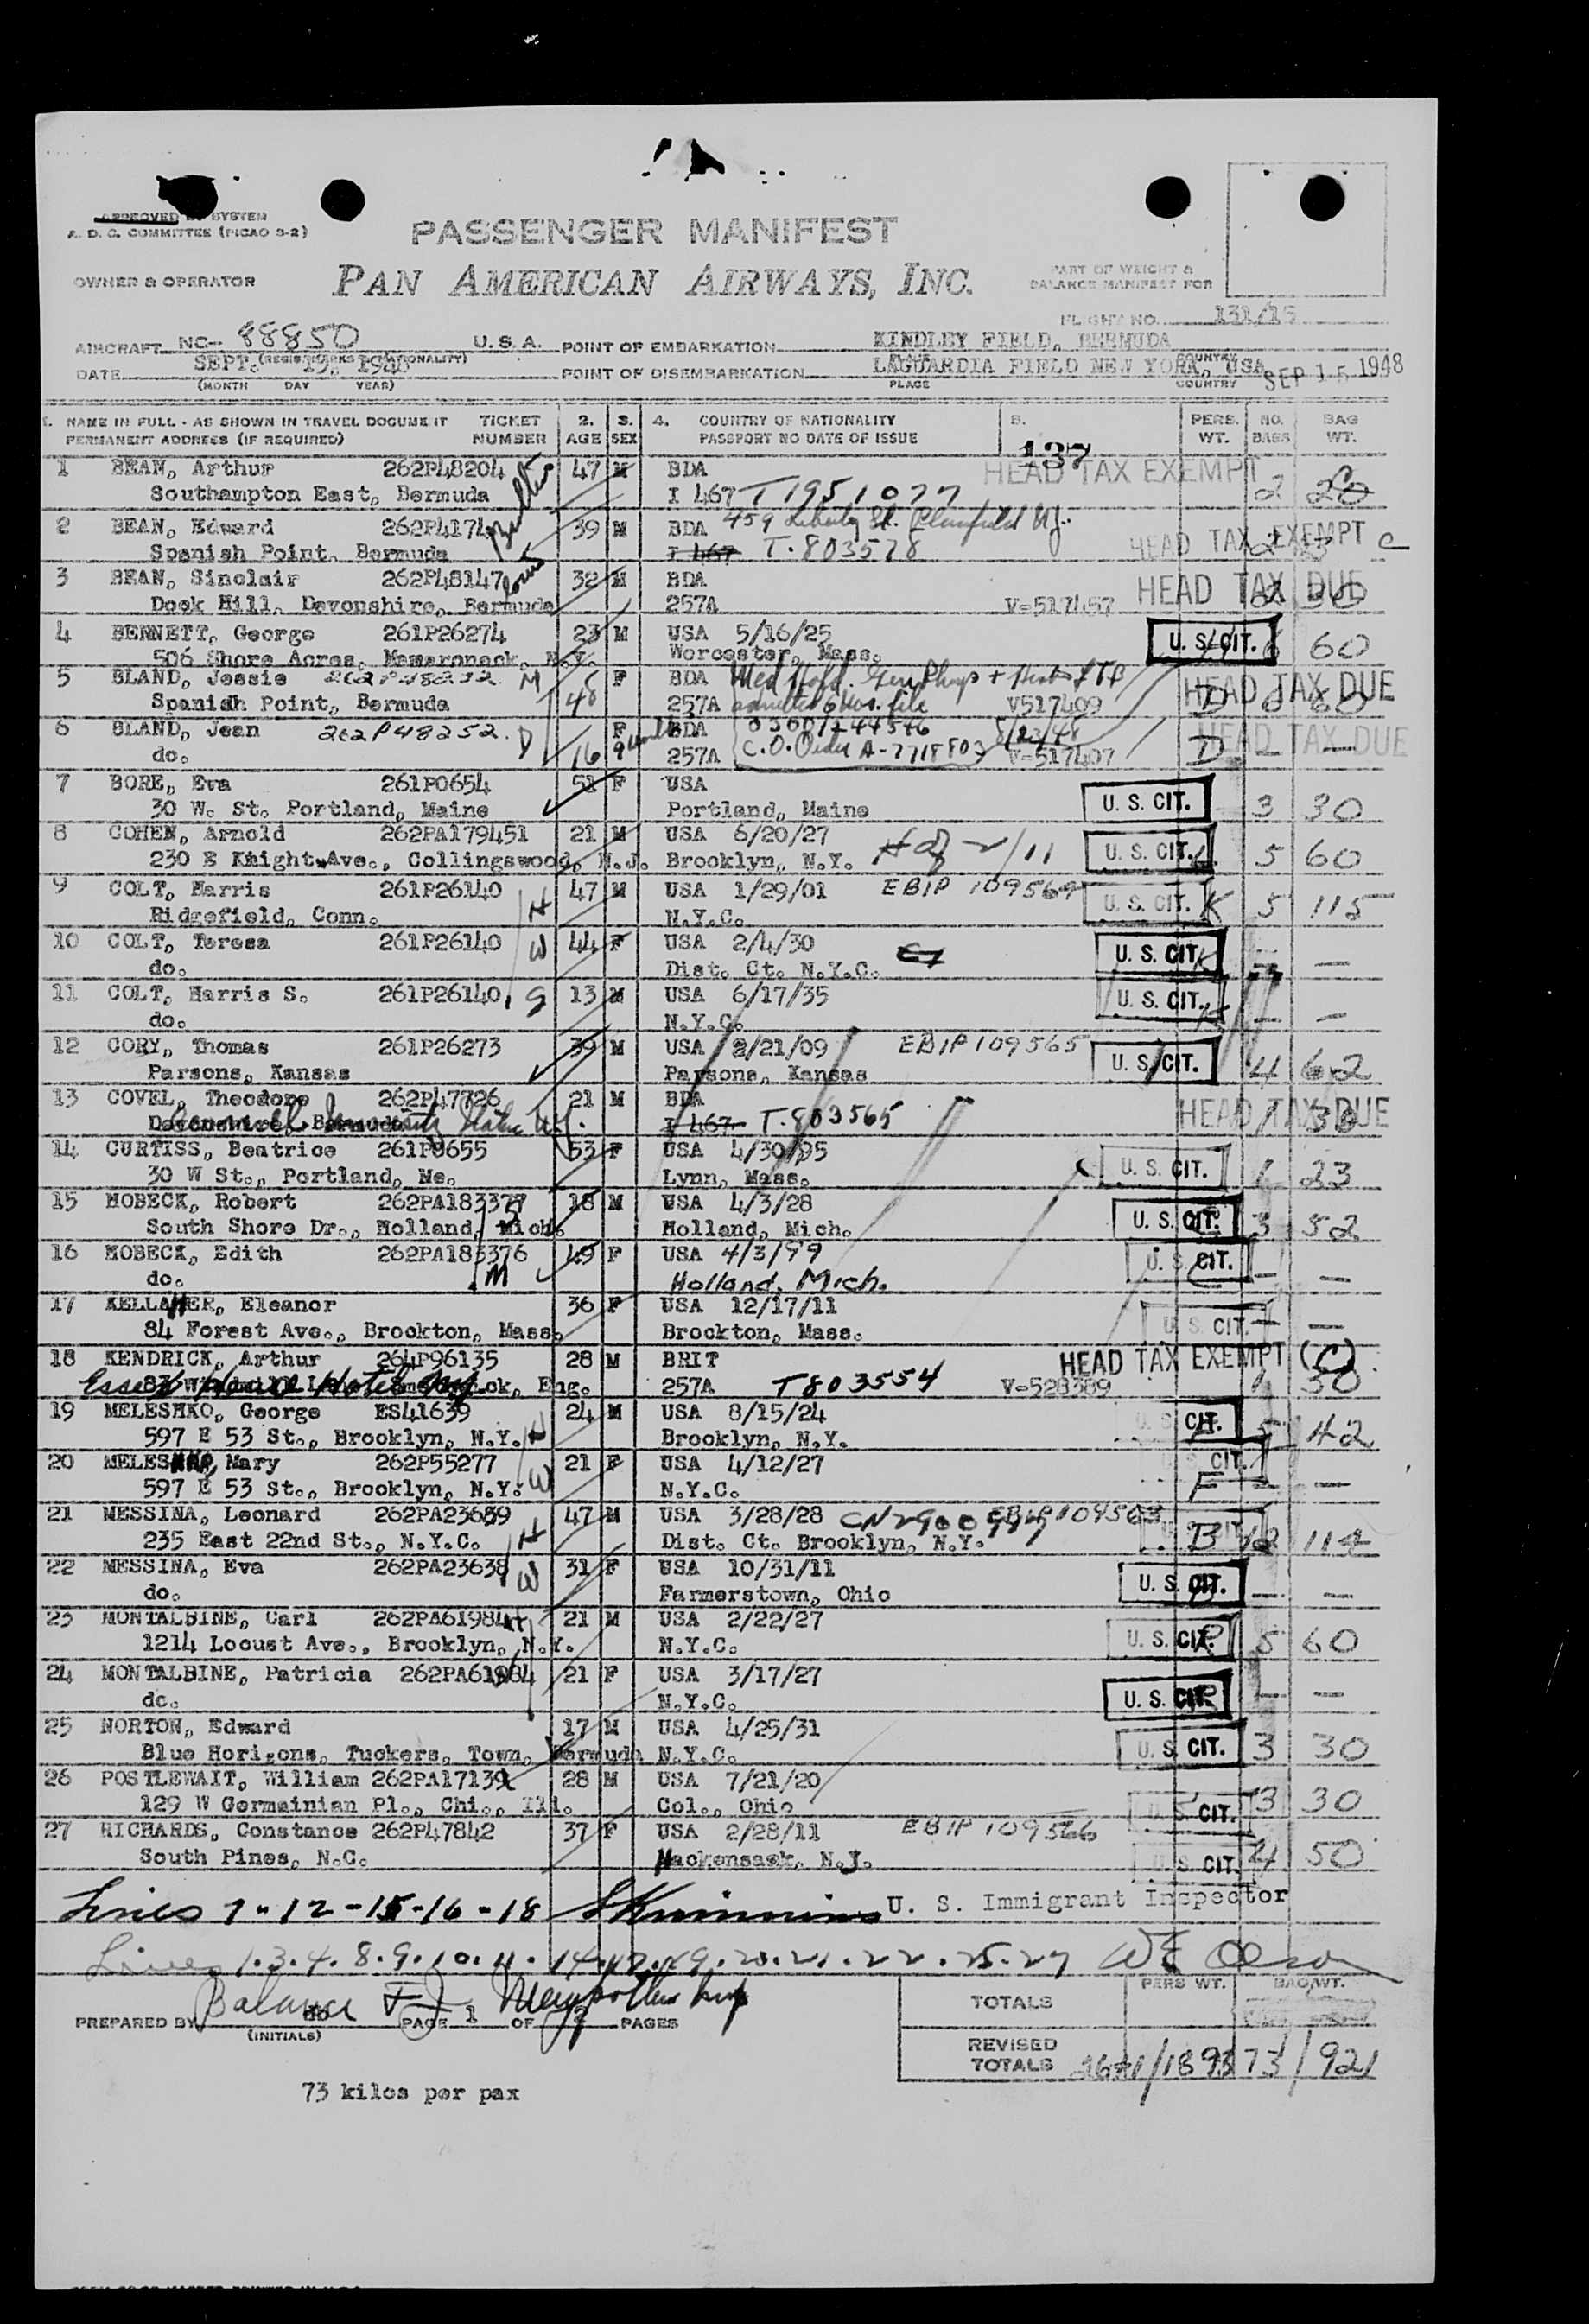 APPROVED BY SYSTEM
A. D. C. COMMITTEE (PICAO S-2)
PASSENGER MANIFEST
OWNER & OPERATOR PAN AMERICAN AIRWAYS, INC.
PART OF WEIGHT &
BALANCE MANIFEST FOR
FLIGHT NO. 131/15
AIRCRAFT NC- 88850 U.S.A. POINT OF EMBARKATION KINDLEY FIELD, BERMUDA
DATE SEPT. 15, 1948 POINT OF DISEMBARKATION LAGUARDIA FIELD NEW YORK, USA SEP 15 1948
(MONTH DAY YEAR) PLACE COUNTRY
1. NAME IN FULL - AS SHOWN IN TRAVEL DOCUMENT TICKET 2. 3. 4. COUNTRY OF NATIONALITY 5. PERS. NO. BAG
PERMANENT ADDRESS (IF REQUIRED) NUMBER AGE SEX PASSPORT NO DATE OF ISSUE 137 WT. BAGS WT.
1 BEAN, Arthur 262P48204 47 M BDA HEAD TAX EXEMPT
Southampton East, Bermuda I 467 T1951077 2 20
2 BEAN, Edward 262P4174 39 M BDA 459 Liberty St. Plainfield NJ.
Spanish Point, Bermuda I 467 T-803578 HEAD TAX EXEMPT C
3 BEAN, Sinclair 262P48147 32 M BDA HEAD TAX DUE
Dock Hill, Devonshire, Bermuda 257A V-517457
4 BENNETT, George 261P26274 23 M USA 5/16/25 U. S. CIT. 6 60
506 Shore Acres, Mamaroneck, N.Y. Worcester, Mass.
5 BLAND, Jessie 262P48252 M F BDA Med Hold. HEAD TAX DUE
Spanish Point, Bermuda 48 257A admitted 6 mos. file V517409 D 6 60
6 BLAND, Jean 262P48252 D F BDA 0300/244546 8/23/48 HEAD TAX DUE
do. 16 257A C.O. Order A-7718803 V-517407 D — —
7 BORE, Eva 261P0654 51 F USA U. S. CIT.
30 W. St. Portland, Maine Portland, Maine 3 30
8 COHEN, Arnold 262PA179451 21 M USA 6/20/27 U. S. CIT. 5 60
230 E Knight Ave., Collingswood, N.J. Brooklyn, N.Y.
9 COLT, Harris 261P26140 H 47 M USA 1/29/01 EBIP 109564 U. S. CIT. K 5 115
Ridgefield, Conn. N.Y.C.
10 COLT, Teresa 261P26140 W 44 F USA 2/4/30 U. S. CIT. K — —
do. Dist. Ct. N.Y.C.
11 COLT, Harris S. 261P26140 S 13 M USA 6/17/35 U. S. CIT. K — —
do. N.Y.C.
12 CORY, Thomas 261P26273 39 M USA 2/21/09 EBIP 109565 U. S. CIT. 4 62
Parsons, Kansas Parsons, Kansas
13 COVEL, Theodore 262P47726 21 M BDA HEAD TAX DUE
Devonshire, Bermuda I 467 T-803565 1 30
14 CURTISS, Beatrice 261P0655 53 F USA 4/30/95 U. S. CIT. 1 23
30 W St., Portland, Me. Lynn, Mass.
15 HOBECK, Robert 262PA183377 S 18 M USA 4/3/28 U. S. CIT. 3 52
South Shore Dr., Holland, Mich. Holland, Mich.
16 HOBECK, Edith 262PA183376 M 49 F USA 4/3/99 U. S. CIT. — —
do. Holland, Mich.
17 KELLAHER, Eleanor 36 F USA 12/17/11 U. S. CIT. — —
84 Forest Ave., Brockton, Mass. Brockton, Mass.
18 KENDRICK, Arthur 264P96135 28 M BRIT HEAD TAX EXEMPT (C)
Essex House Hotel NY Eng. 257A T803554 V-528389 1 30
19 MELESHKO, George ES41639 H 24 M USA 8/15/24 U. S. CIT. 5 42
597 E 53 St., Brooklyn, N.Y. Brooklyn, N.Y.
20 MELESHKO, Mary 262P55277 W 21 F USA 4/12/27 U. S. CIT. F — —
597 E 53 St., Brooklyn, N.Y. N.Y.C.
21 MESSINA, Leonard 262PA23639 H 47 M USA 3/28/28 B 12 114
235 East 22nd St., N.Y.C. Dist. Ct. Brooklyn, N.Y.
22 MESSINA, Eva 262PA23638 W 31 F USA 10/31/11 U. S. CIT. — —
do. Farmerstown, Ohio
23 MONTALBINE, Carl 262PA61984 H 21 M USA 2/22/27 U. S. CIT. 5 60
1214 Locust Ave., Brooklyn, N.Y. N.Y.C.
24 MONTALBINE, Patricia 262PA61984 21 F USA 3/17/27 U. S. CIT. — —
do. N.Y.C.
25 NORTON, Edward 17 M USA 4/25/31 U. S. CIT. 3 30
Blue Horizons, Tuckers, Town, Bermuda N.Y.C.
26 POSTLEWAIT, William 262PA17139 28 M USA 7/21/20 U. S. CIT. 3 30
129 W Germainian Pl., Chi., Ill. Col., Ohio
27 RICHARDS, Constance 262P47842 37 F USA 2/28/11 EBIP 109566 U. S. CIT. 4 50
South Pines, N.C. Hackensack, N.J.
Lines 7-12-15-16-18 U. S. Immigrant Inspector
Lines 1.3.4.8.9.10.11.14.17.19.20.21.22.25.27 WE Olson
Balance
PREPARED BY (INITIALS) PAGE 1 OF 2 PAGES
TOTALS PERS WT. BAG WT.
REVISED TOTALS 73/921
73 kilos per pax